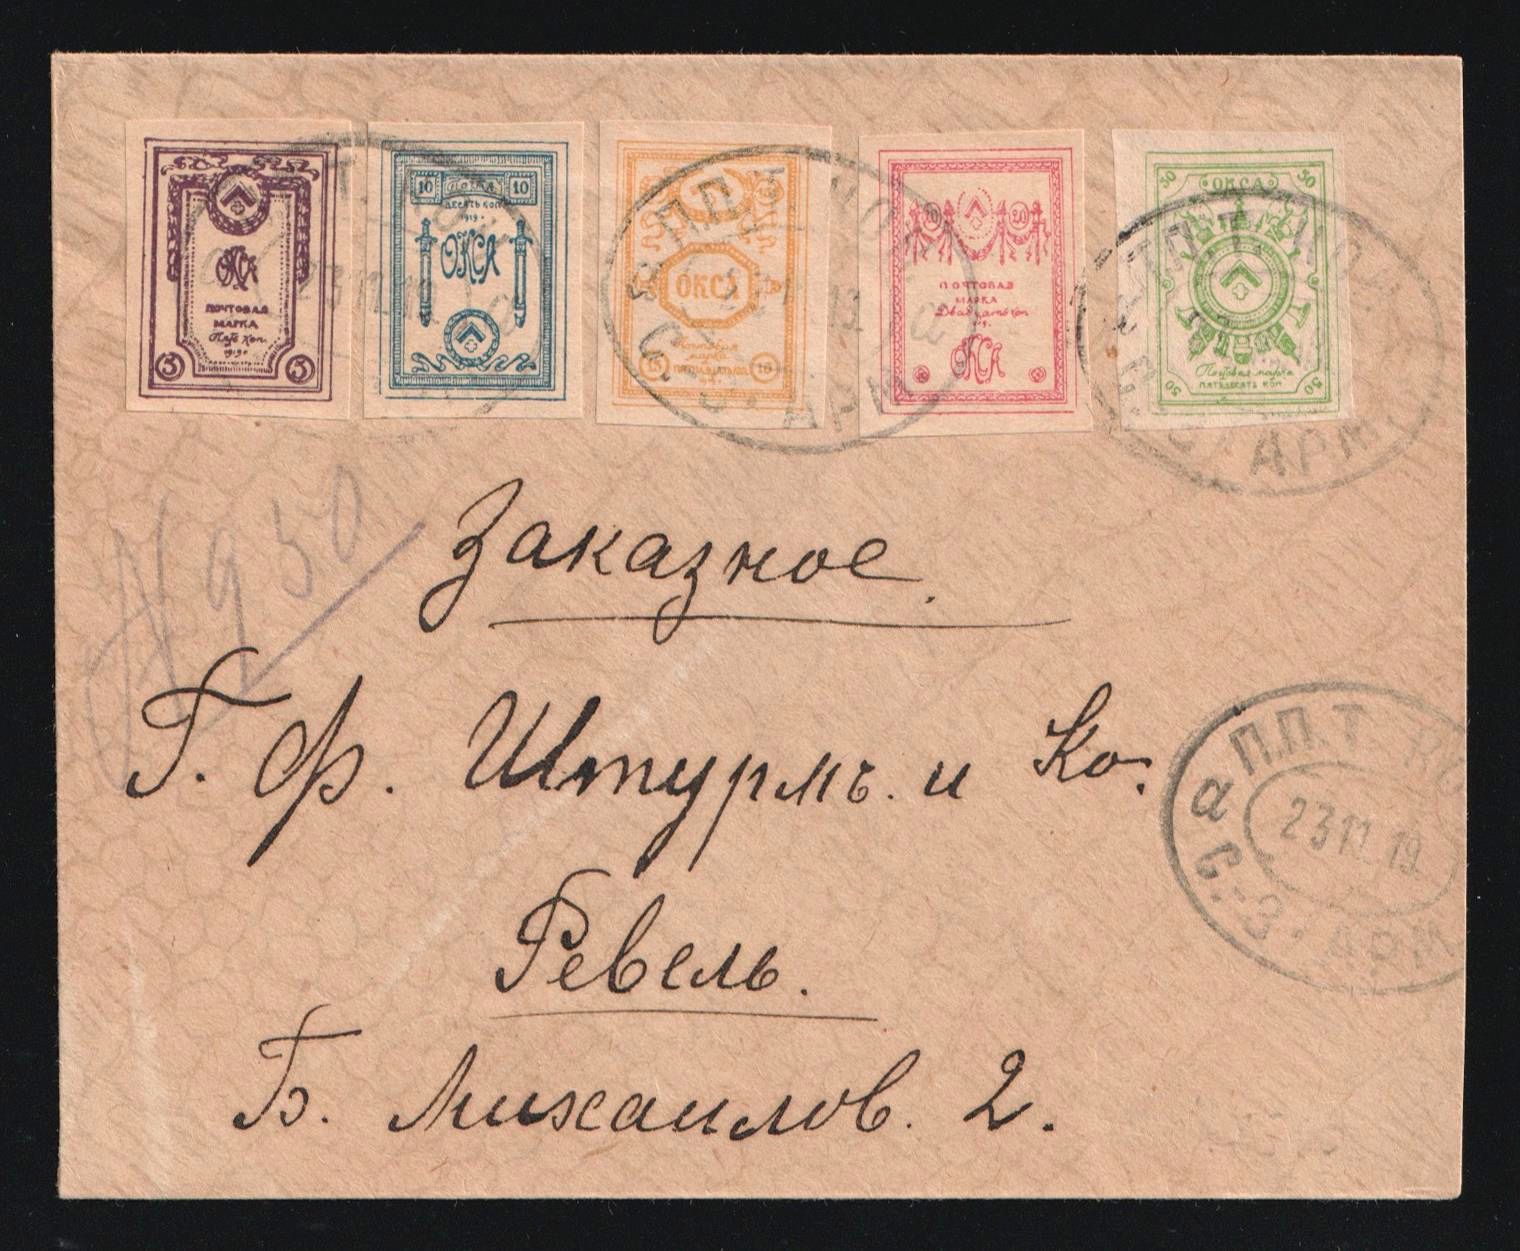 ОКСА
ПОЧТОВАЯ
МАРКА
Пять коп.
1919 г.
5 5
10 ПОЧТА 10
ДЕСЯТЬ КОП.
1919 г.
ОКСА
15
ОКСА
Почтовая
марка
15 15
20 20
ПОЧТОВАЯ
МАРКА
Двадцать коп.
ОКСА
50 ОКСА 50
Почтовая марка
ПЯТЬДЕСЯТ КОП.
50 50
С.-З. АРМ.
23 11 19
№ 950
Заказное.
Г. Ф. Штурмъ. и Ко.
Ревель.
Б. Михаилов. 2.
а П.П.Т. КО
23 11 19
С.-З. АРМ